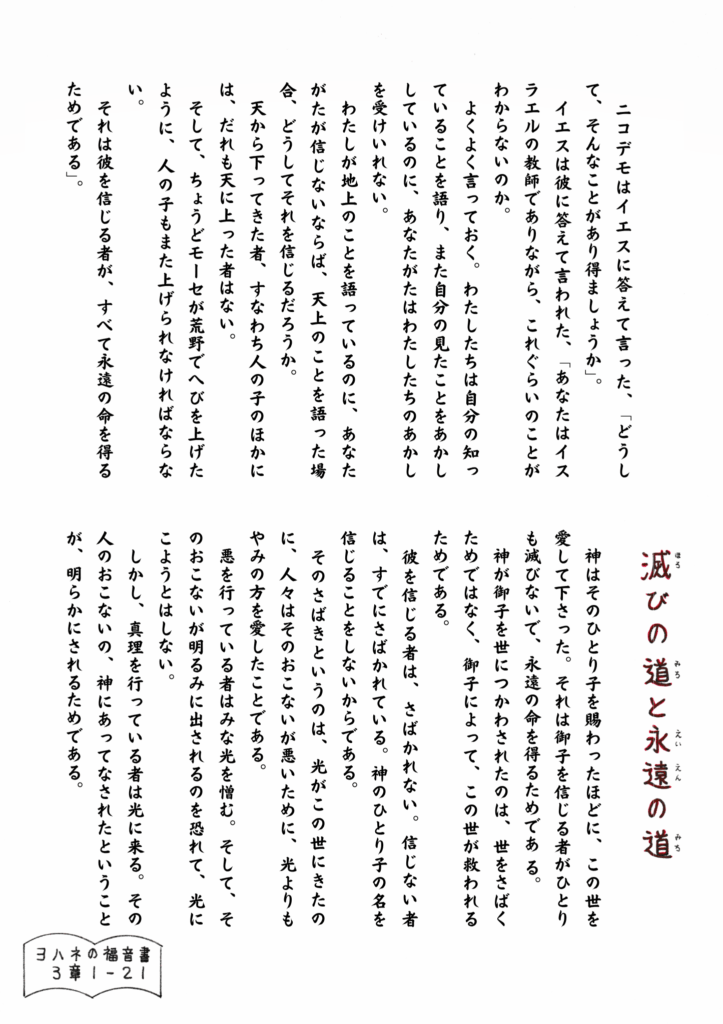 ニコデモはイエスに答えて言った、「どうし
て、そんなことがあり得ましょうか」。
イエスは彼に答えて言われた、「あなたはイス
ラエルの教師でありながら、これぐらいのことが
わからないのか。
よくよく言っておく。わたしたちは自分の知っ
ていることを語り、また自分の見たことをあかし
しているのに、あなたがたはわたしたちのあかし
を受けいれない。
わたしが地上のことを語っているのに、あなた
がたが信じないならば、天上のことを語った場
合、どうしてそれを信じるだろうか。
天から下ってきた者、すなわち人の子のほかに
は、だれも天に上った者はない。
そして、ちょうどモーセが荒野でへびを上げた
ように、人の子もまた上げられなければならな
い。
それは彼を信じる者が、すべて永遠の命を得る
ためである」。
滅びの道と永遠の道
ほろ みち えい えん みち
神はそのひとり子を賜わったほどに、この世を
愛して下さった。それは御子を信じる者がひとり
も滅びないで、永遠の命を得るためである。
神が御子を世につかわされたのは、世をさばく
ためではなく、御子によって、この世が救われる
ためである。
彼を信じる者は、さばかれない。信じない者
は、すでにさばかれている。神のひとり子の名を
信じることをしないからである。
そのさばきというのは、光がこの世にきたの
に、人々はそのおこないが悪いために、光よりも
やみの方を愛したことである。
悪を行っている者はみな光を憎む。そして、そ
のおこないが明るみに出されるのを恐れて、光に
こようとはしない。
しかし、真理を行っている者は光に来る。その
人のおこないの、神にあってなされたということ
が、明らかにされるためである。
ヨハネの福音書
3章1-21